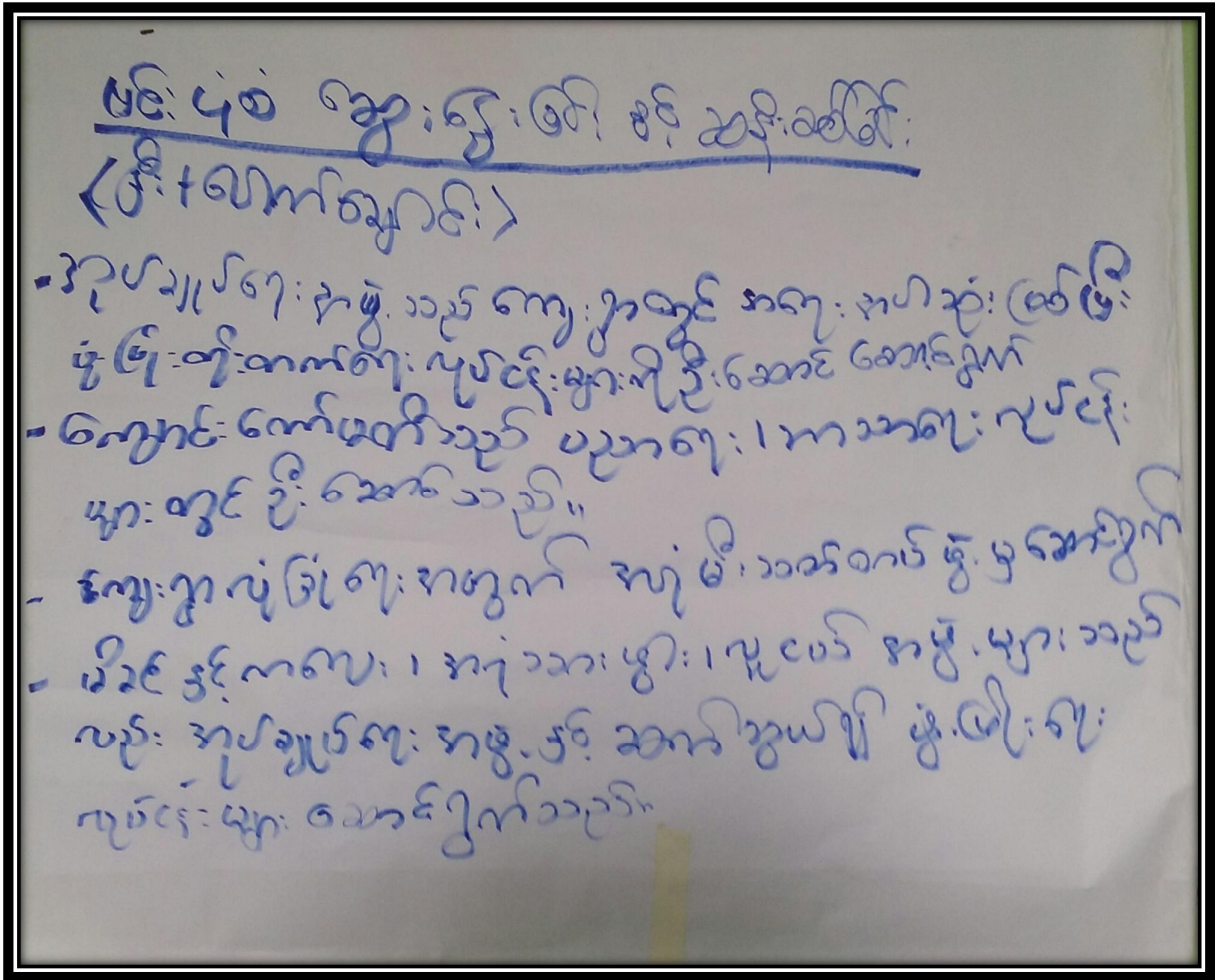 ပင်းပုံစံ ဆွေးနွေးခြင်း နှင့် ဆန်းစစ်ခြင်း
(မီး + လောက်ချောင်း)
- အုပ်ချုပ်ရေးအဖွဲ့သည် ကျေးရွာတွင် အရေးအပါဆုံးဖြစ်ပြီး
ဖွံ့ဖြိုးတိုးတက်ရေးလုပ်ငန်းများကို ဦးဆောင် ဆောင်ရွက်
- ကျောင်းကော်မတီသည် ပညာရေး၊ ဘာသာရေး လုပ်ငန်း
များတွင် ဦးဆောင်သည်။
- ကျေးရွာလုံခြုံရေးအတွက် အရံမီးသတ်တပ်ဖွဲ့မှ ဆောင်ရွက်
- မိခင်နှင့်ကလေး၊ အရံသားဖွား၊ လူငယ် အဖွဲ့များသည်
လည်း အုပ်ချုပ်ရေးအဖွဲ့နှင့် ဆက်သွယ်၍ ဖွံ့ဖြိုးရေး
လုပ်ငန်းများ ဆောင်ရွက်သည်။